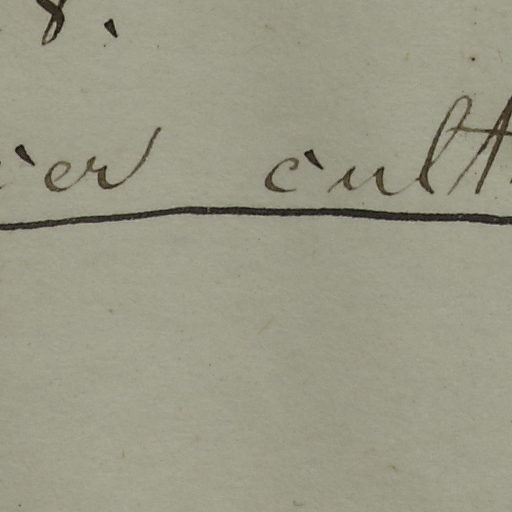 8.
ier cult